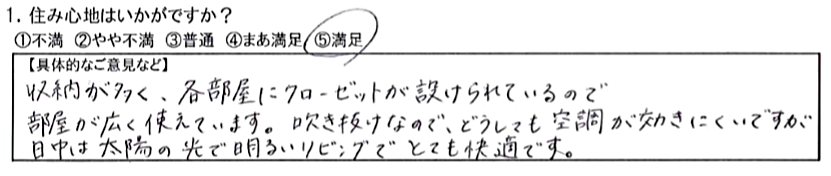 1. 住み心地はいかがですか？
①不満 ②やや不満 ③普通 ④まあ満足 ⑤満足
【具体的なご意見など】
収納が多く、各部屋にクローゼットが設けられているので
部屋が広く使えています。吹き抜けなので、どうしても空調が効きにくいですが
日中は太陽の光で明るいリビングでとても快適です。